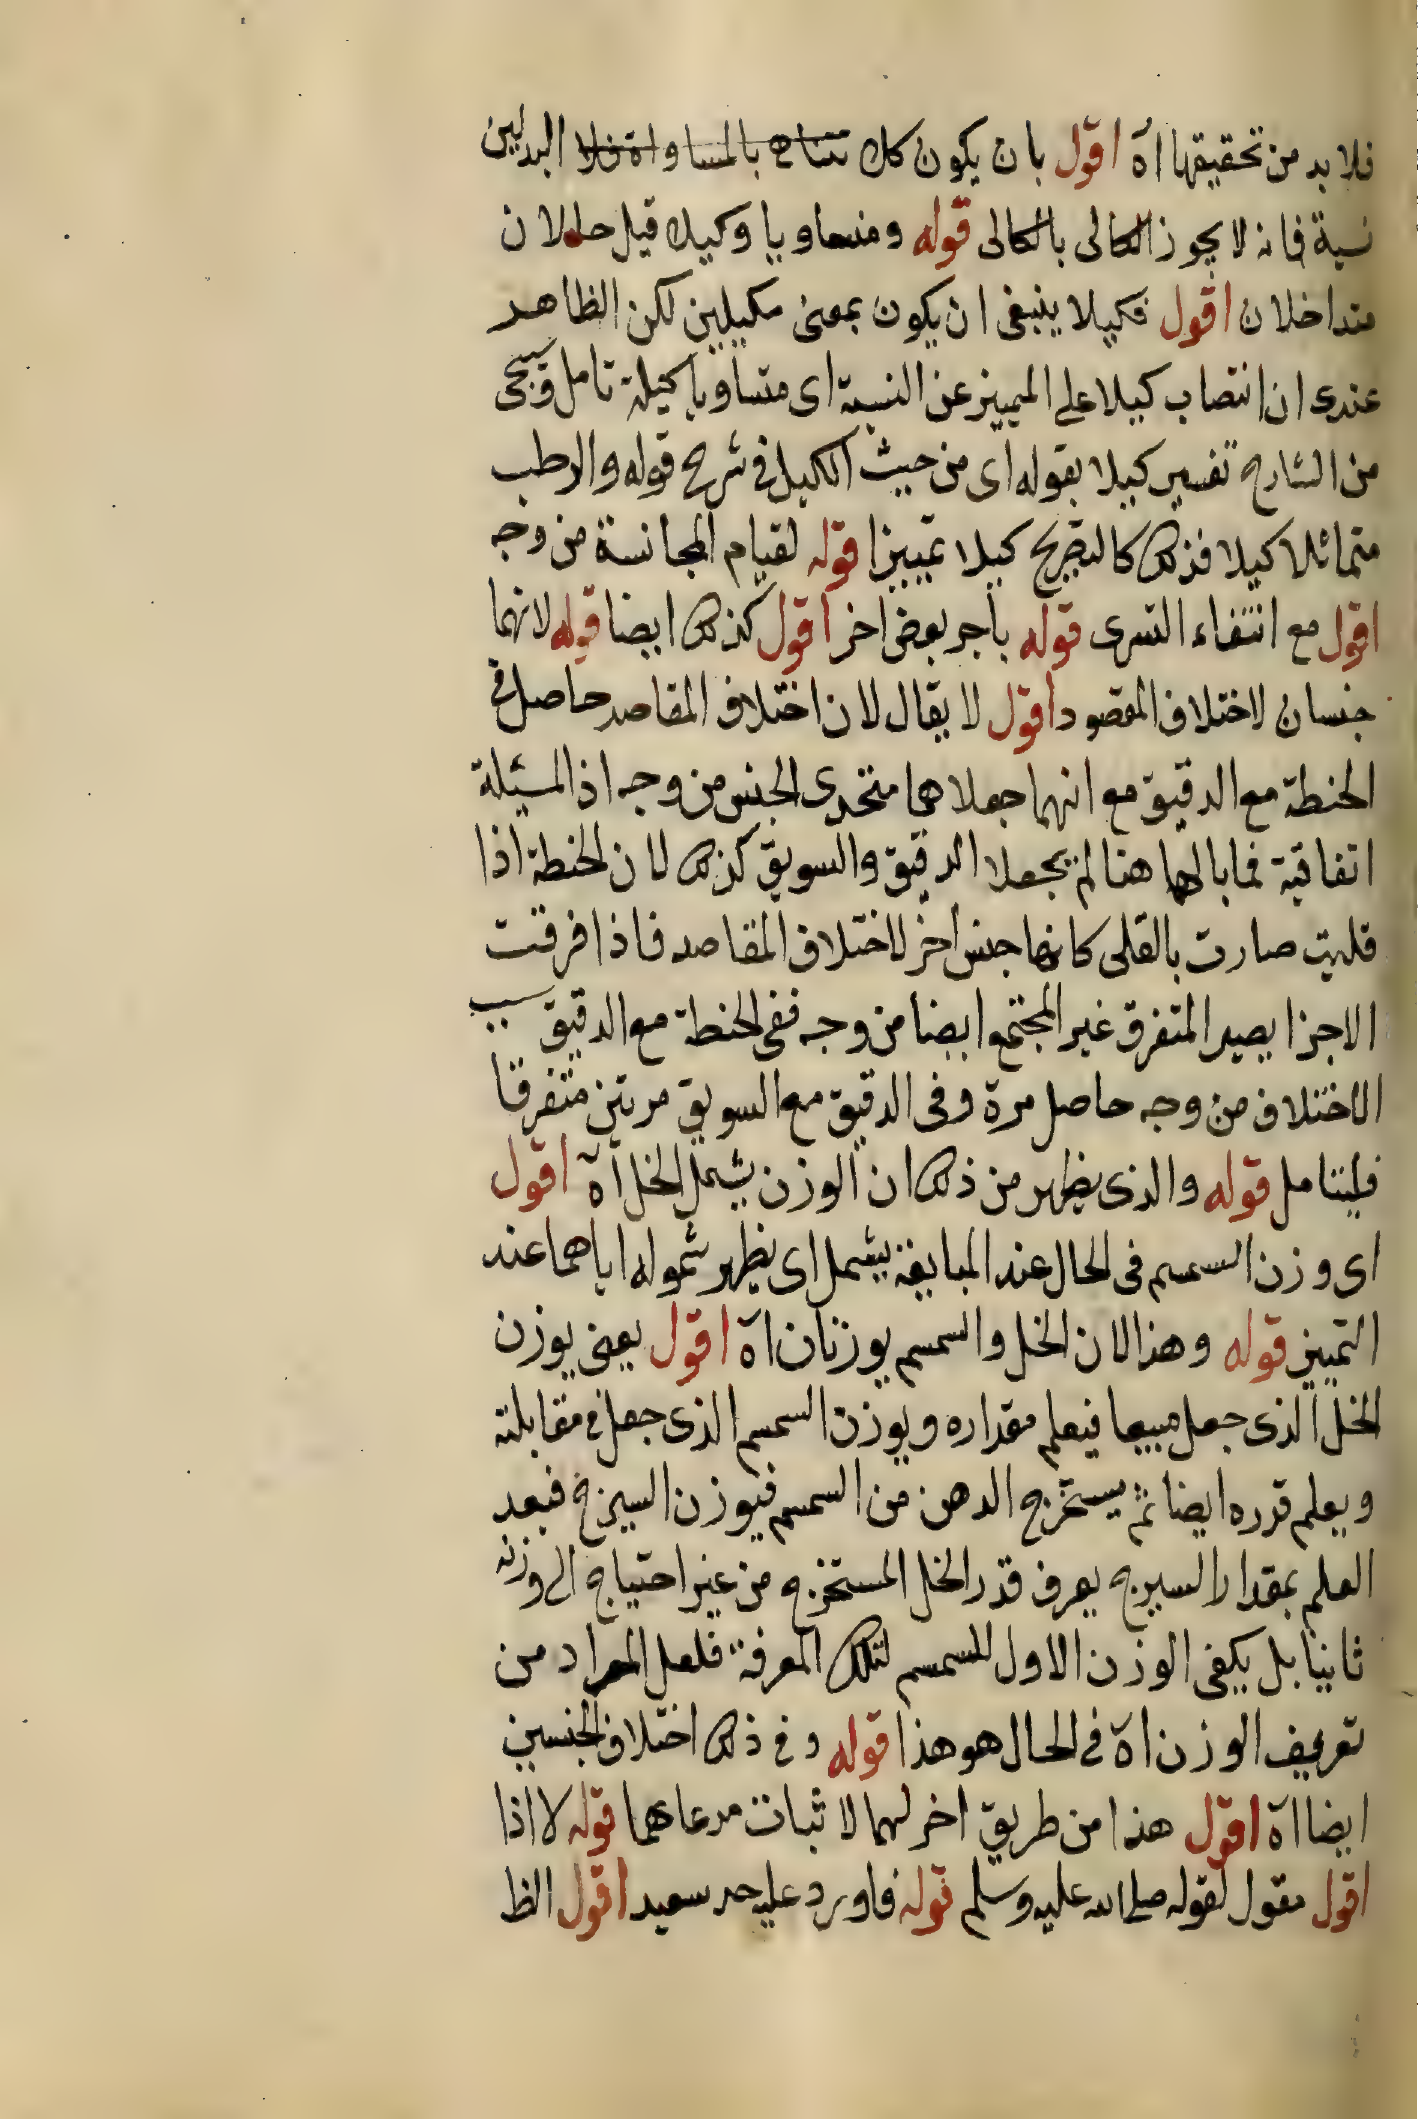 فلا بد من تحقيقها اه اقول بان يكون كل بالمساواة فلا البدلين
نسية فانه لا يجوز الكالى بالكالى قوله ومتساويا وكيلا قيل حالان
متداخلان اقول فكيلا ينبغى ان يكون بمعنى مكيلين لكن الظاهر
عندى ان انتصاب كيلا على التمييز عن النسبة اى متساويا كيله تامل وسيجى
من الشارح تفسير كيلا بقوله اى من حيث الكيل فى شرح قوله والرطب
متماثلا كيلا فذلك كالتصريح كيلا تمييزا قوله لقيام المجانسة من وجه
اقول مع انتفاء التسرى قوله باجر بعض اخر اقول كذلك ايضا قوله لانهما
جنسان لاختلاف المقصود اقول لا يقال لان اختلاف المقاصد حاصل فى
الحنطة مع الدقيق مع انهما جعلا هما متحدى الجنس من وجه اذ المسئلة
اتفاقية فما بالهما هنا لم يجعلا الدقيق والسويق كذلك لان الحنطة اذا
قليت صارت بالقلى كانها جنس اخر لاختلاف المقاصد فاذا فرقت
الاجزا يصير المتفرق غير المجتمع ايضا من وجه ففى الحنطة مع الدقيق سبب
الاختلاف من وجه حاصل مرة وفى الدقيق مع السويق مرتين متفرقا
فليتامل قوله والذى يظهر من ذلك ان الوزن يشمل الخل اه اقول
اى وزن السمسم فى الحال عند المبايعة يشمل اى يظهر شموله اياهما عند
التمييز قوله وهذا لان الخل والسمسم يوزنان اه اقول يعنى يوزن
الخل الذى جعل مبيعا فيعلم مقداره ويوزن السمسم الذى جعل فى مقابلته
ويعلم قدره ايضا ثم يستخرج الدهن من السمسم فيوزن السيرج فبعد
العلم بمقدار السيرج يعرف قدر الخل المستخرج من غير احتياج الى وزنه
ثانيا بل يكفى الوزن الاول للسمسم لتلك المعرفة فلعل المراد من
تعريف الوزن اه فى الحال هو هذا قوله وفى ذلك اختلاف الجنسين
ايضا اه اقول هذا من طريق اخر لهما لاثبات مدعاهما قوله لا اذا
اقول مقول لقوله صلى الله عليه وسلم قوله فاورد عليه حد سعيد اقول الظ